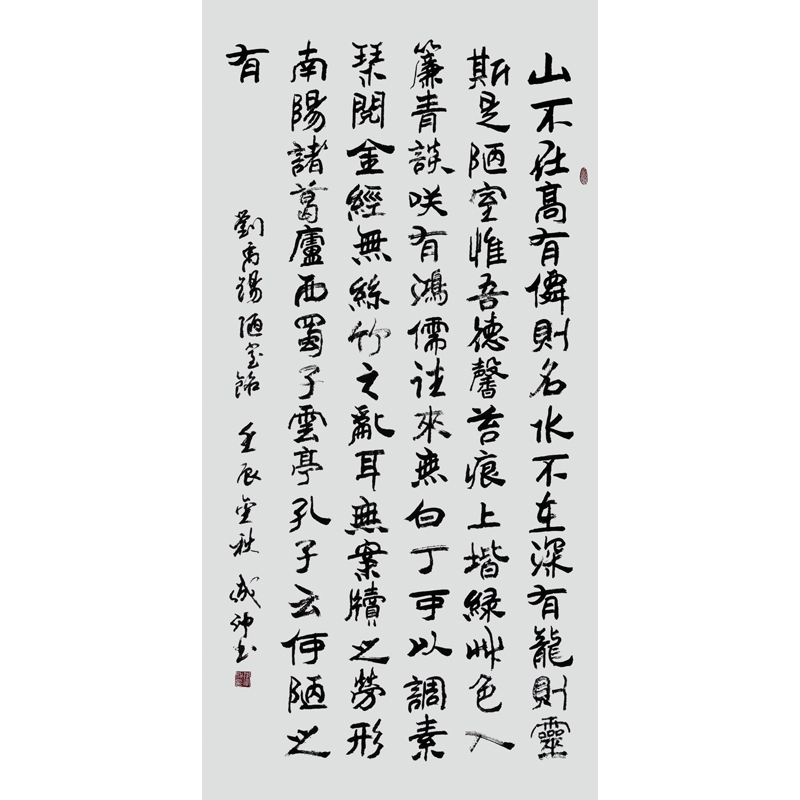 山不在高有僊則名水不在深有龍則靈
斯是陋室惟吾德馨苔痕上堦綠艸色入
簾青談咲有鴻儒往來無白丁可以調素
琹閱金經無絲竹之亂耳無案牘之勞形
南陽諸葛廬西蜀子雲亭孔子云何陋之
有
劉禹錫陋室銘 壬辰金秋 成沖書